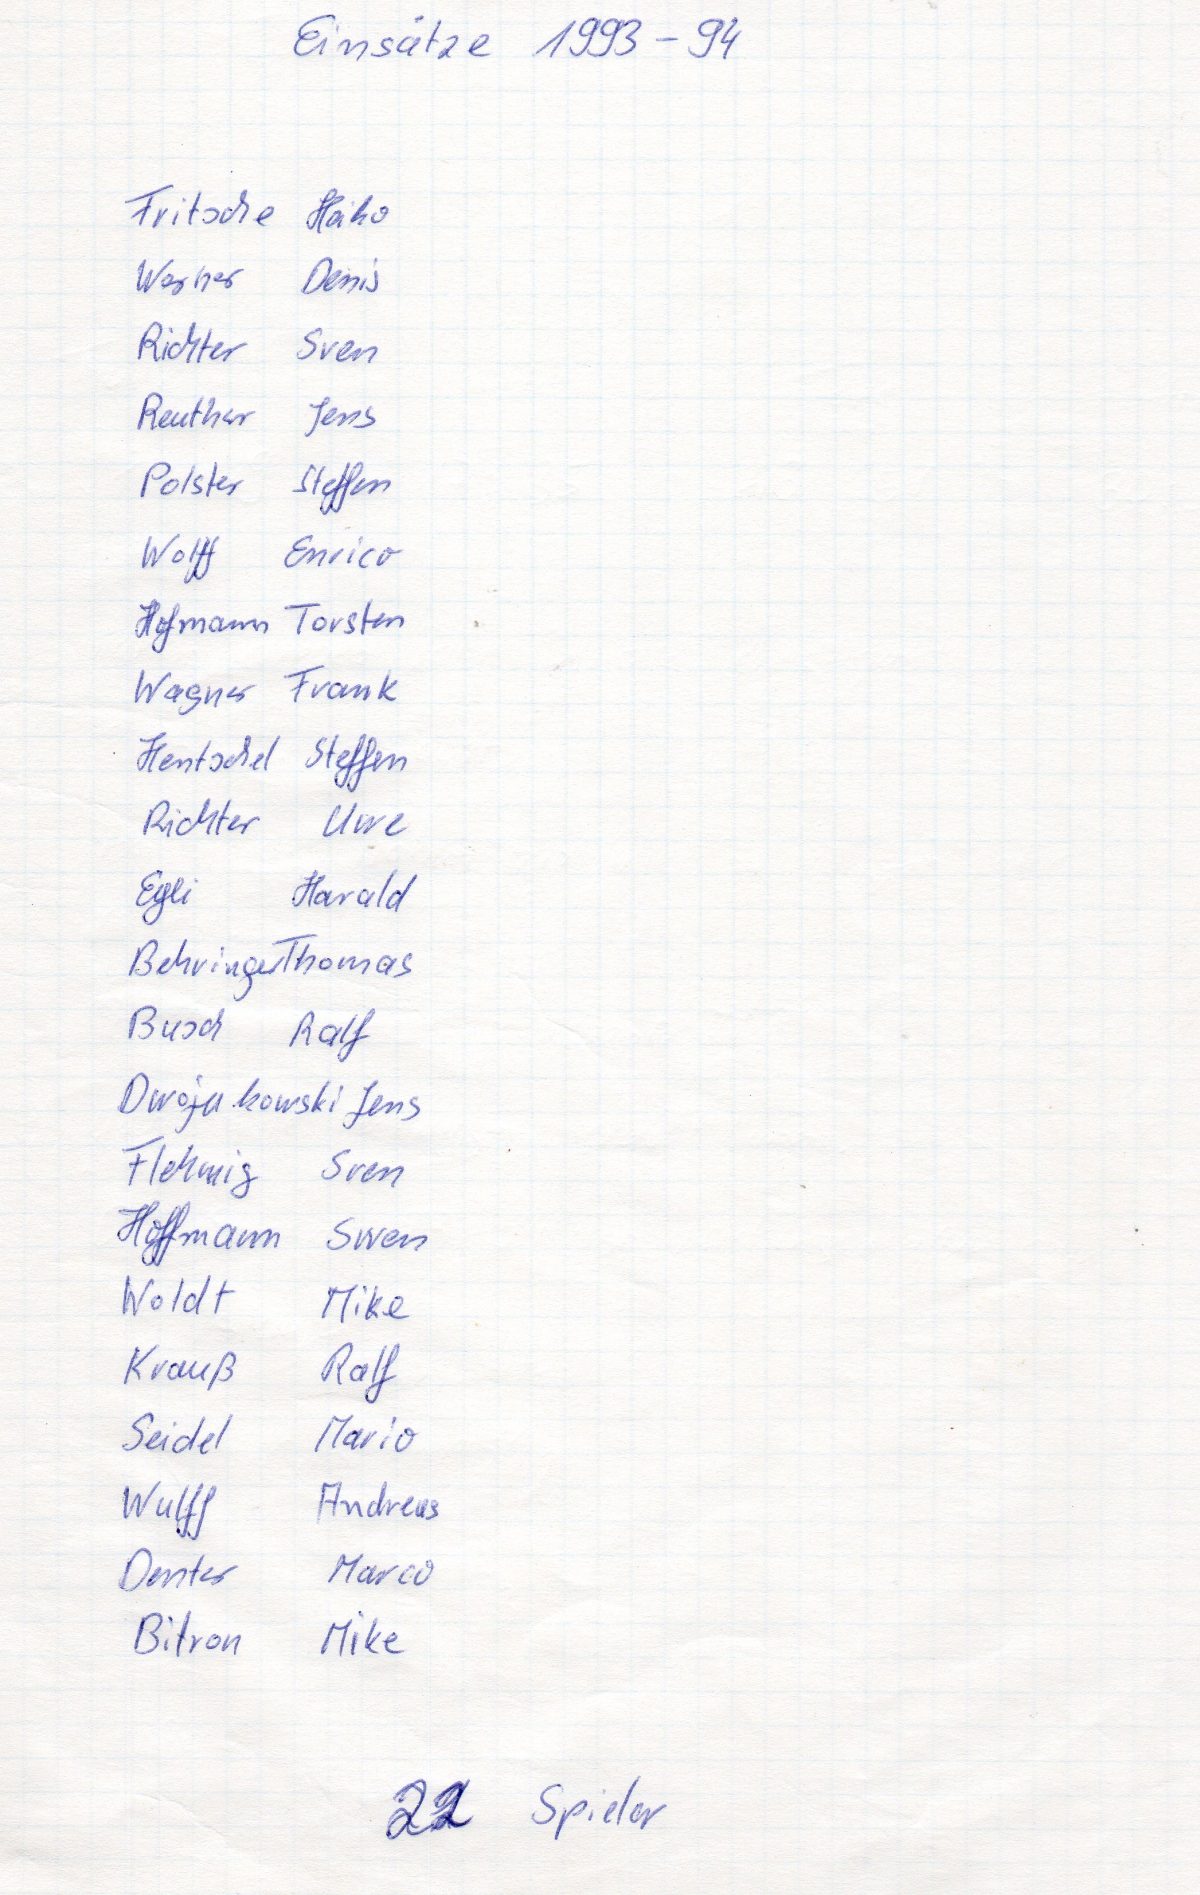 Einsätze 1993-94
Fritsche Heiko
Werner Denis
Richter Sven
Reuther Jens
Polster Steffen
Wolff Enrico
Hofmann Torsten
Wagner Frank
Hentschel Steffen
Richter Uwe
Egli Harald
Behringer Thomas
Busch Ralf
Dwojakowski Jens
Flehmig Sven
Hoffmann Swen
Woldt Mike
Krauß Ralf
Seidel Mario
Wulff Andreas
Denter Marco
Bitron Mike
22 Spieler